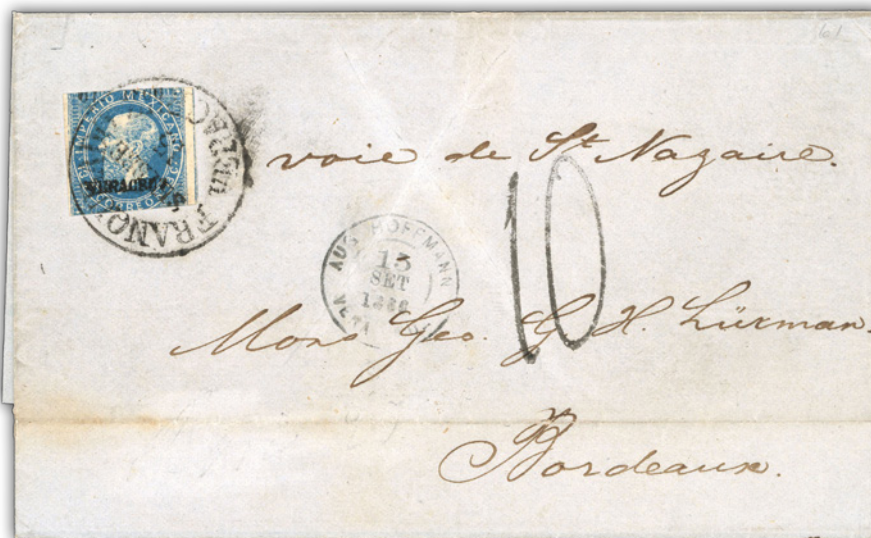 IMPERIO MEXICANO
VERACRUZ
CORREOS
FRANCO
voie de St Nazaire.
AUG. HOFFMANN
13
SET
1866
10
Mons Geo. G. H. Lürman.
Bordeaux.